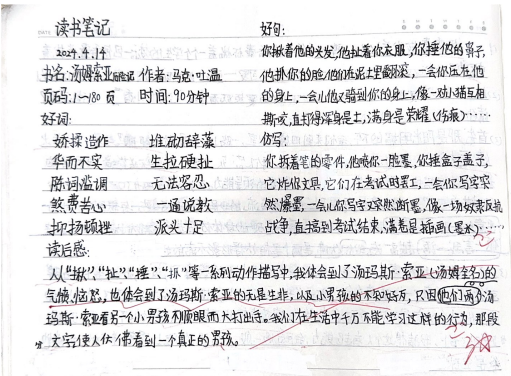 读书笔记
2024.9.14
书名:汤姆索亚历险记 作者:马克·吐温
页码:1~180页 时间:90分钟
好词:
娇揉造作 堆砌辞藻
华而不实 生拉硬扯
陈词滥调 无法容忍
煞费苦心 一通说教
抑扬顿挫 派头十足
好句:
你揪着他的头发,他扯着你衣服,你捶他的鼻子,
他抓你的脸,他们在泥土里翻滚,一会你压在他
的身上,一会儿他又骑到你的身上,像一对小猫互相
撕咬,直打得浑身是土,满身是荣耀(伤痕)……
仿写:
你折着笔的零件,他喷你一脸墨,你捶盒子盖子,
它炸你文具,它们在考试时罢工,一会你写字突
然爆墨,一会儿你写字突然断墨,像一场效果反抗
战争,直搞到考试结束,满卷是插画(墨水)……
读后感:
从“揪”“扯”“捶”“抓”等一系列动作描写中,我体会到了汤玛斯·索亚(汤姆全名)的
气愤,恼怒,也体会到了汤玛斯·索亚的无是生非,以及小男孩的不知好歹,只因他们两汤
玛斯·索亚看另一个小男孩不顺眼而大打出手。我们在生活中千万不能学习这样的行为,那段
文字使人仿佛看到一个真正的男孩。